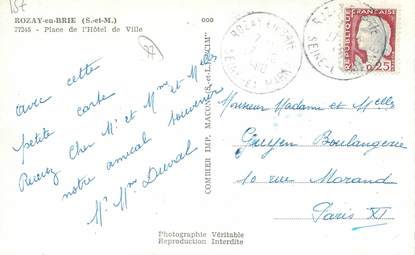 157
ROZAY-en-BRIE (S.-et-M.)
77245 - Place de l'Hôtel de Ville
77
avec cette
petite carte
Recevez Cher Mr et Mme et Melles
notre amical souvenir
Mr Mme Duval
COMBIER IMP. MACON (S.-et-L.) "CIM"
ROZAY EN BRIE
SEINE-ET-MARNE
SEINE-ET-MARNE
REPUBLIQUE FRANCAISE
0,25
Monsieur Madame et Melles
Guyen Boulangerie
10 rue Morand
Paris XI
Photographie Véritable
Reproduction Interdite